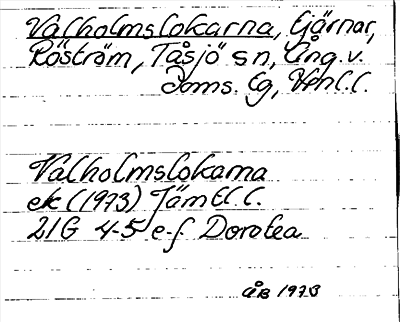 Valholmslokarna, tjärnar,
Röström, Tåsjö sn, Ång. v.
Doms. Eg, Vrnl. l.
Valholmslokarna
ek (1973) Jämtl. l.
21G 4-5 e-f Dorotea
ÅB 1973